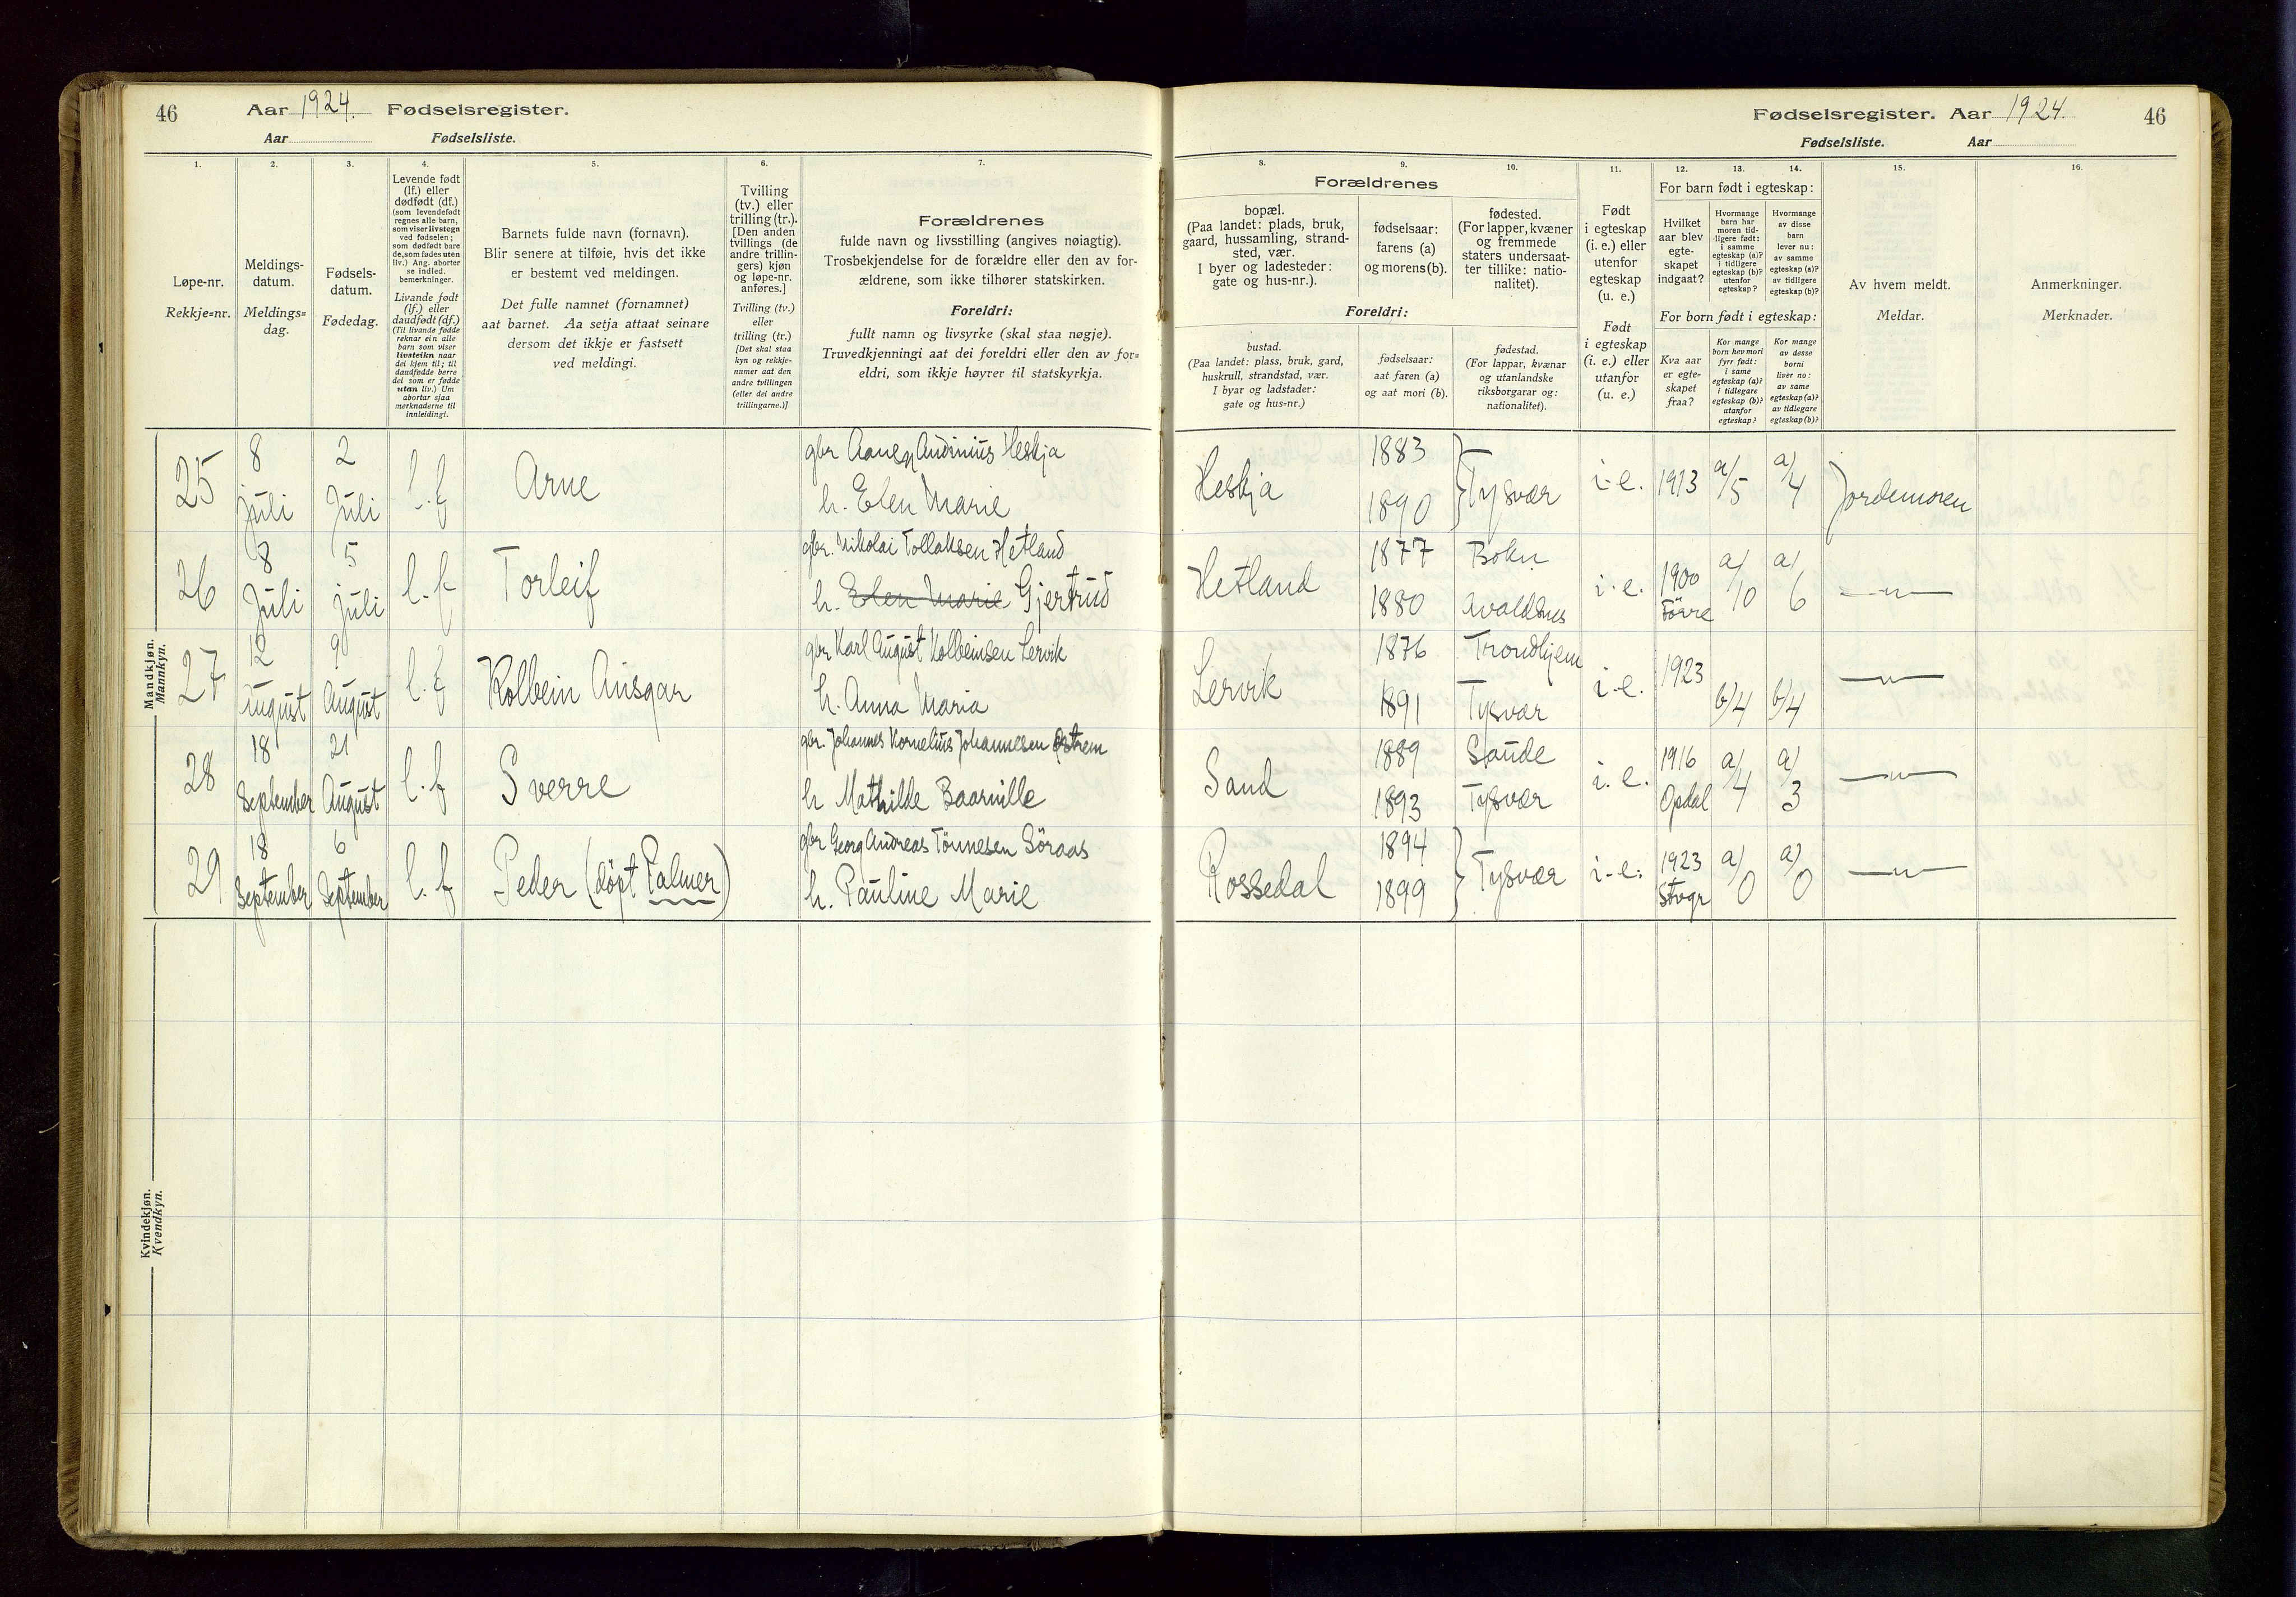 46
Aar 1924. Fødselsregister.
Aar Fødselsliste.
1.
Løpe-nr.
Rekkje=nr.
2.
Meldings-
datum.
Meldings=
dag.
3.
Fødsels-
datum.
Fødedag.
4.
Levende født
(lf.) eller
dødfødt (df.)
(som levendefødt
regnes alle barn,
som viser livstegn
ved fødselen;
som dødfødt bare
de, som fødes uten
liv.) Ang. aborter
se indled.
bemerkninger.
Livande født
(lf.) eller
daudfødt (df.)
(Til livande fødde
reknar ein alle
barn som viser
livsteikn naar
dei kjem til; til
daudfødde berre
dei som er fødde
utan liv.) Um
abortar sjaa
merknaderne til
innleidingi.
5.
Barnets fulde navn (fornavn).
Blir senere at tilføie, hvis det ikke
er bestemt ved meldingen.
Det fulle namnet (fornamnet)
aat barnet. Aa setja attaat seinare
dersom det ikkje er fastsett
ved meldingi.
6.
Tvilling
(tv.) eller
trilling (tr.).
[Den anden
tvillings (de
andre trillin-
gers) kjøn
og løpe-nr.
anføres.]
Tvilling (tv.)
eller
trilling (tr.)
[Det skal staa
kyn og rekkje-
numer aat den
andre tvillingen
(eller dei andre
trillingarne.)]
7.
Forældrenes
fulde navn og livsstilling (angives nøiagtig).
Trosbekjendelse for de forældre eller den av for-
ældrene, som ikke tilhører statskirken.
Foreldri:
fullt namn og livsyrke (skal staa nøgje).
Truvedkjenningi aat dei foreldri eller den av for=
eldri, som ikkje høyrer til statskyrkja.
Fødselsregister. Aar 1924. 46
Fødselsliste. Aar
8.
9.
10.
Forældrenes
bopæl.
(Paa landet: plads, bruk,
gaard, hussamling, strand-
sted, vær.
I byer og ladesteder:
gate og hus-nr.).
fødselsaar:
farens (a)
og morens (b).
fødested.
(For lapper, kvæner
og fremmede
staters undersaat-
ter tillike: natio-
nalitet).
Foreldri:
bustad.
(Paa landet: plass, bruk, gard,
huskrull, strandstad, vær.
I byar og ladstader:
gate og hus=nr.)
fødselsaar:
aat faren (a)
og aat mori (b).
fødestad.
(For lappar, kvænar
og utanlandske
riksborgarar og:
nationalitet).
11.
Født
i egteskap
(i. e.) eller
utenfor
egteskap
(u. e.)
Født
i egteskap
(i. e.) eller
utanfor
(u. e.)
12.
13.
14.
For barn født i egteskap:
Hvilket
aar blev
egte-
skapet
indgaat?
Hvormange
barn har
moren tid-
ligere født:
i samme
egteskap (a)?
i tidligere
egteskap (b)?
utenfor
egteskap?
Hvormange
av disse
barn
lever nu:
av samme
egteskap (a)?
av tidligere
egteskap (b)?
For born født i egteskap:
Kva aar
er egte=
skapet
fraa?
Kor mange
born hev mori
fyrr født:
i same
egteskap (a)?
i tidlegare
egteskap (b)?
utanfor
egteskap?
Kor mange
av desse
borni
liver no:
av same
egteskap (a)?
av tidlegare
egteskap (b)?
15.
Av hvem meldt.
Meldar.
16.
Anmerkninger.
Merknader.
Mandkjøn.
Mannkyn.
25 8 juli 2 Juli l.f Arne gbr Aanen Audinius Heskja
h. Elen Marie
Heskja 1883 1890 Tysvær i.e. 1913 a/5 a/4 Jordemoren
26 8 Juli 5 juli l.f Torleif gbr. Nikolai Tollaksen Hetland
h. Elen Marie Gjertrud
Hetland 1877 Bokn 1880 Avaldsnes i.e. 1900 Förre a/10 a/6 —"—
27 12 August 9 August l.f Kolbein Ansgar gbr Karl August Kolbeinsen Lervik
h. Anna Maria
Lervik 1876 Trondhjem 1891 Tysvær i.e. 1923 b/4 b/4 —"—
28 18 September 21 August l.f Sverre gbr. Johannes Kornelius Johannesen Østrem
h Mathilde Baarnille
Sand 1889 Saude 1893 Tysvær i.e. 1916 Opdal a/4 a/3 —"—
29 18 September 6 September l.f Peder (döpt Palmer) gbr Georg Andreas Tönnesen Söraas
h. Pauline Marie
Rossedal 1894 1899 Tysvær i.e. 1923 Stvgr a/0 a/0 —"—
Kvindekjøn.
Kvendkyn.